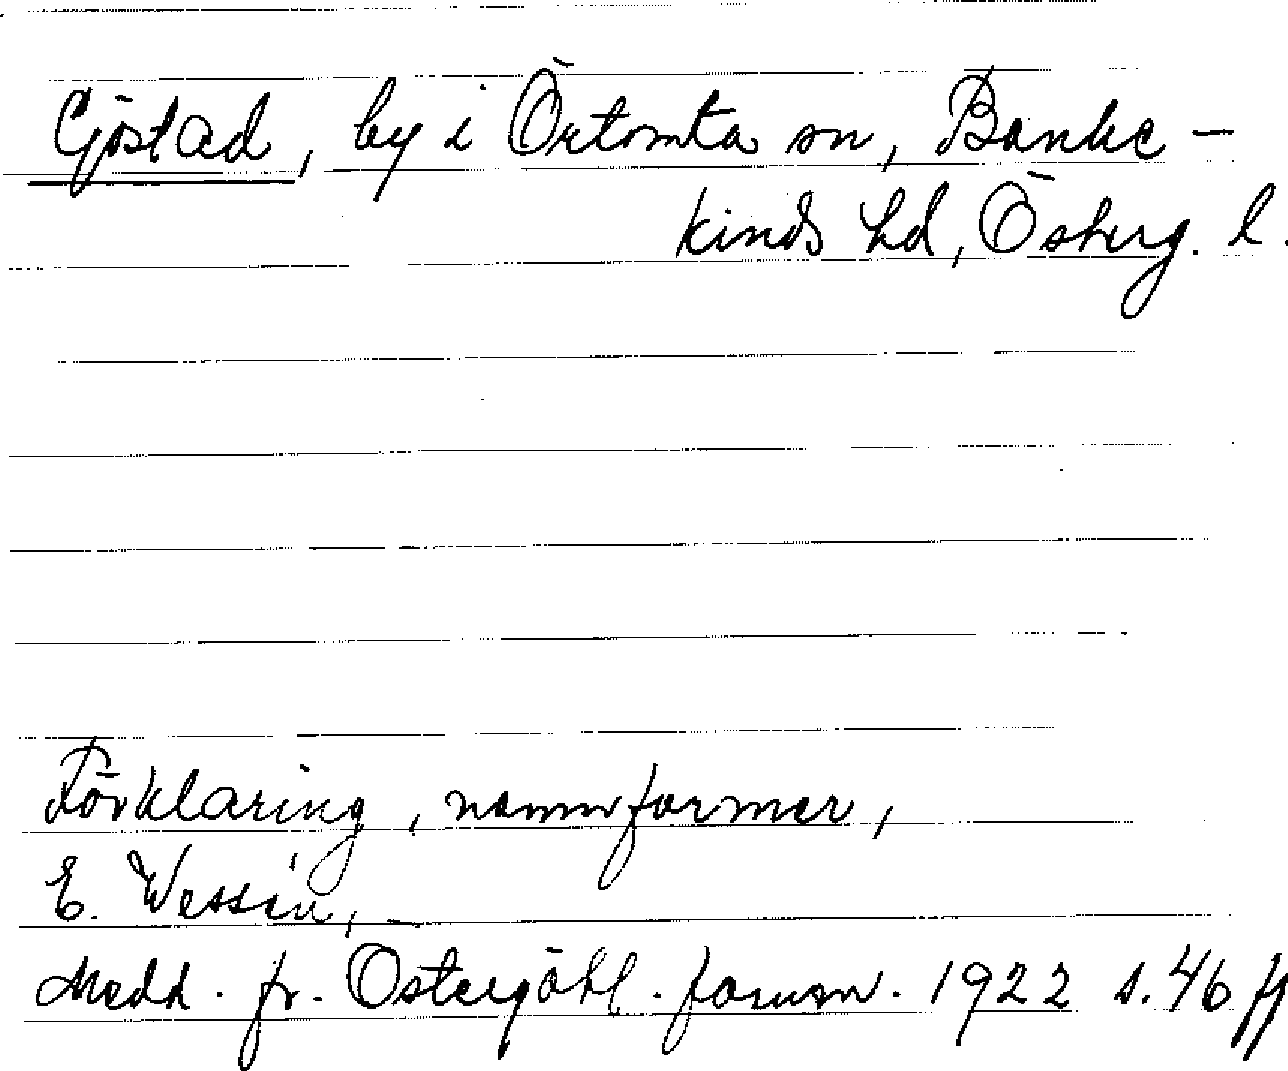 Gjöstad, by i Örtomta sn, Banke-
kinds hd, Österg. l.
Förklaring, namnformer,
E. Wessén,
Medd. fr. Östergötl. fornm. 1922 s. 46 ff